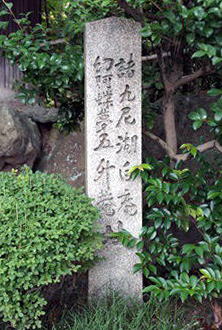 諸九尼湖白庵
幻阿蝶夢五升庵址